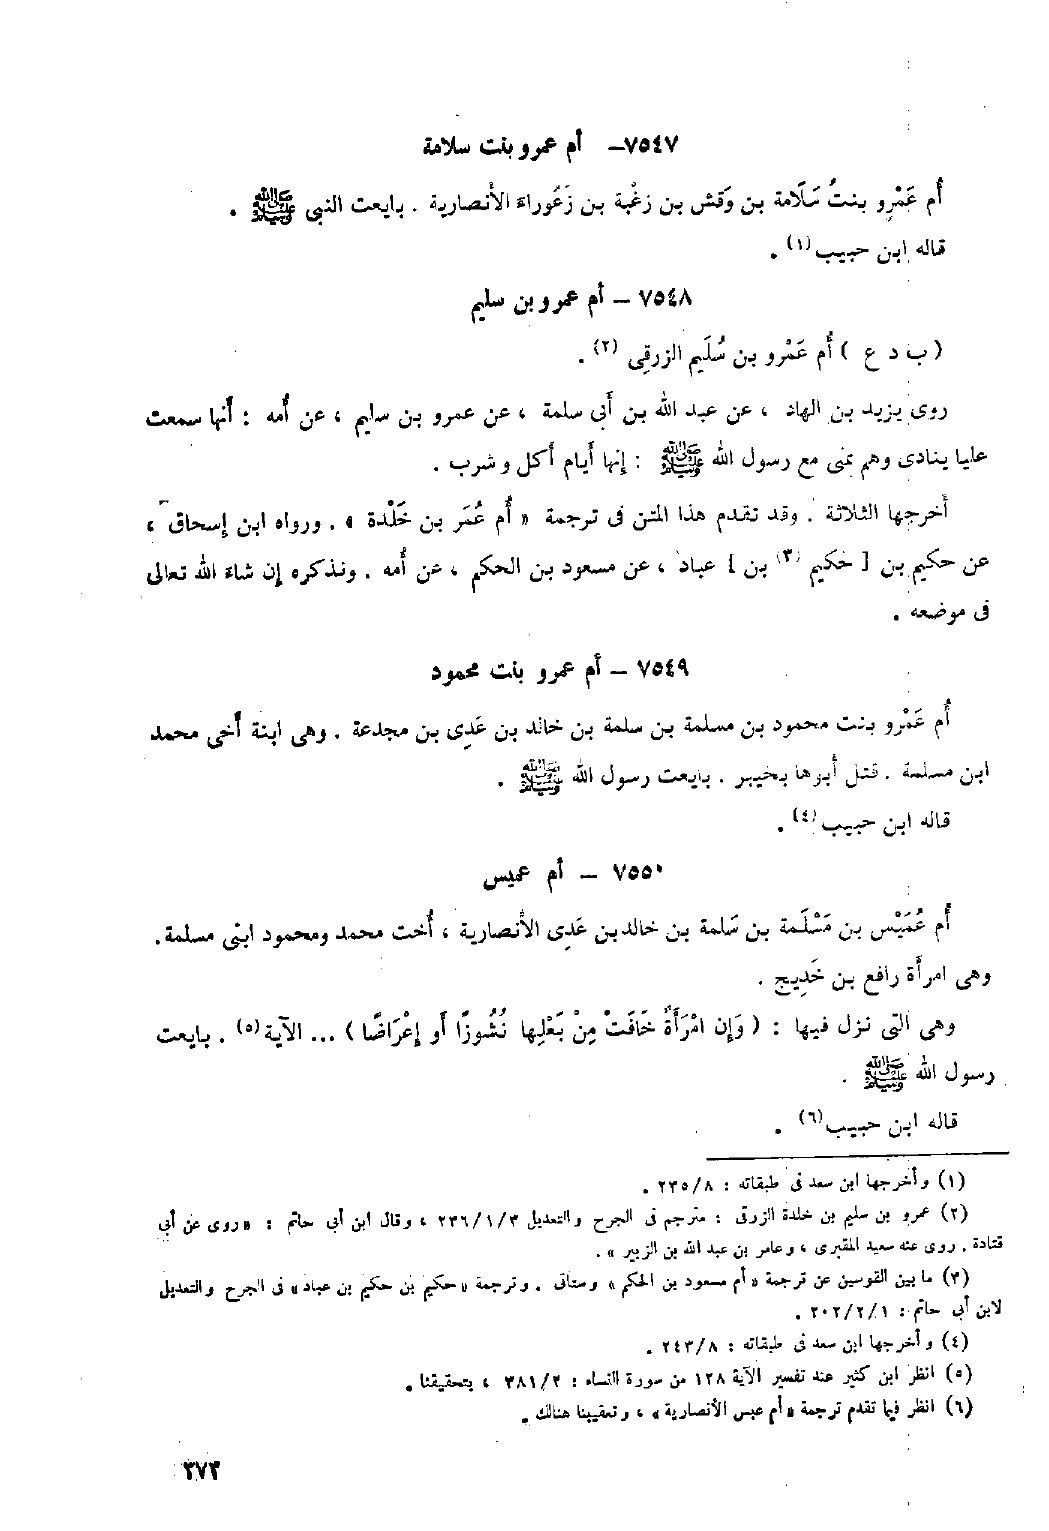 ٧٥٤٧- أم عمرو بنت سلامة
أُم عَمْرِو بنتُ سَلَامة بن وَقش بن زغْبة بن زَعُوراءَ الأَنصارية . بايعت النبى ﷺ .
قاله ابن حبيب (١) .
٧٥٤٨ – أم عمرو بن سليم
( ب د ع ) أُم عَمْرو بن سُلَيم الزرقى (٢) .
روى يزيد بن الهاد ، عن عبد الله بن أَبى سلمة ، عن عمرو بن سليم ، عن أُمه : أَنها سمعت
عليا ينادى وهم بمنى مع رسول الله ﷺ : إِنها أَيام أَكل وشرب .
أَخرجها الثلاثة . وقد تقدم هذا المتن فى ترجمة « أُم عُمَر بن خَلْدة » . ورواه ابن إِسحاق ،
عن حكيم بن [ حكيم (٣) بن ] عباد ، عن مسعود بن الحكم ، عن أُمه . ونذكره إِن شاءَ الله تعالى
فى موضعه .
٧٥٤٩ – أم عمرو بنت محمود
أُم عَمْرو بنت محمود بن مسلمة بن سلمة بن خالد بن عَدِى بن مجدعة . وهى ابنة أَخى محمد
ابن مسلمة . قتل أَبوها بخيبر . بايعت رسول الله ﷺ .
قاله ابن حبيب (٤) .
٧٥٥٠ – أم عميس
أُم عُمَيْس بن مَسْلَمة بن سَلمة بن خالد بن عَدِى الأَنصارية ، أُخت محمد ومحمود ابنى مسلمة .
وهى امرأَة رافع بن خَدِيج .
وهى التى نزل فيها : ( وَإِن امْرَأَةٌ خَافَتْ مِنْ بَعْلِها نُشُوزًا أَو إِعْرَاضًا ) ... الآية (٥) . بايعت
رسول الله ﷺ .
قاله ابن حبيب (٦) .
(١) وأخرجها ابن سعد فى طبقاته : ٢٣٥/٨ .
(٢) عمرو بن سليم بن خلدة الزرقى : مترجم فى الجرح والتعديل ٢٣٦/١/٣ ، وقال ابن أبى حاتم : « روى عن أبى
قتادة . روى عنه سعيد المقبرى ، وعامر بن عبد الله بن الزبير » .
(٣) ما بين القوسين عن ترجمة « أم مسعود بن الحكم » وستأتى . وترجمة « حكيم بن حكيم بن عباد » فى الجرح والتعديل
لابن أبى حاتم : ٢٠٢/٢/١ .
(٤) وأخرجها ابن سعد فى طبقاته : ٢٤٣/٨ .
(٥) انظر ابن كثير عند تفسير الآية ١٢٨ من سورة النساء : ٣٨١/٢ ، بتحقيقنا .
(٦) انظر فيما تقدم ترجمة « أم عبس الأنصارية » ، وتعقيبنا هنالك .
٣٧٣